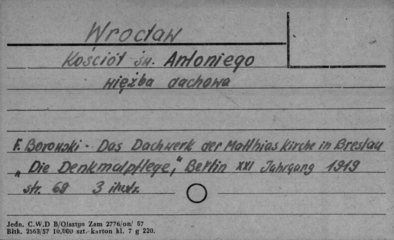 Wrocław
Kościół św. Antoniego
więźba dachowa
F. Borowski - Das Dachwerk der Matthias Kirche in Breslau
„Die Denkmalpflege," Berlin XXI Jahrgang 1919
str. 69 3 ilustr.
Jedn. C.W.D B/Olsztyn Zam 2776/on/ 57
Bltk. 2563/57 10,000 szt. karton kl. 7 g 220.